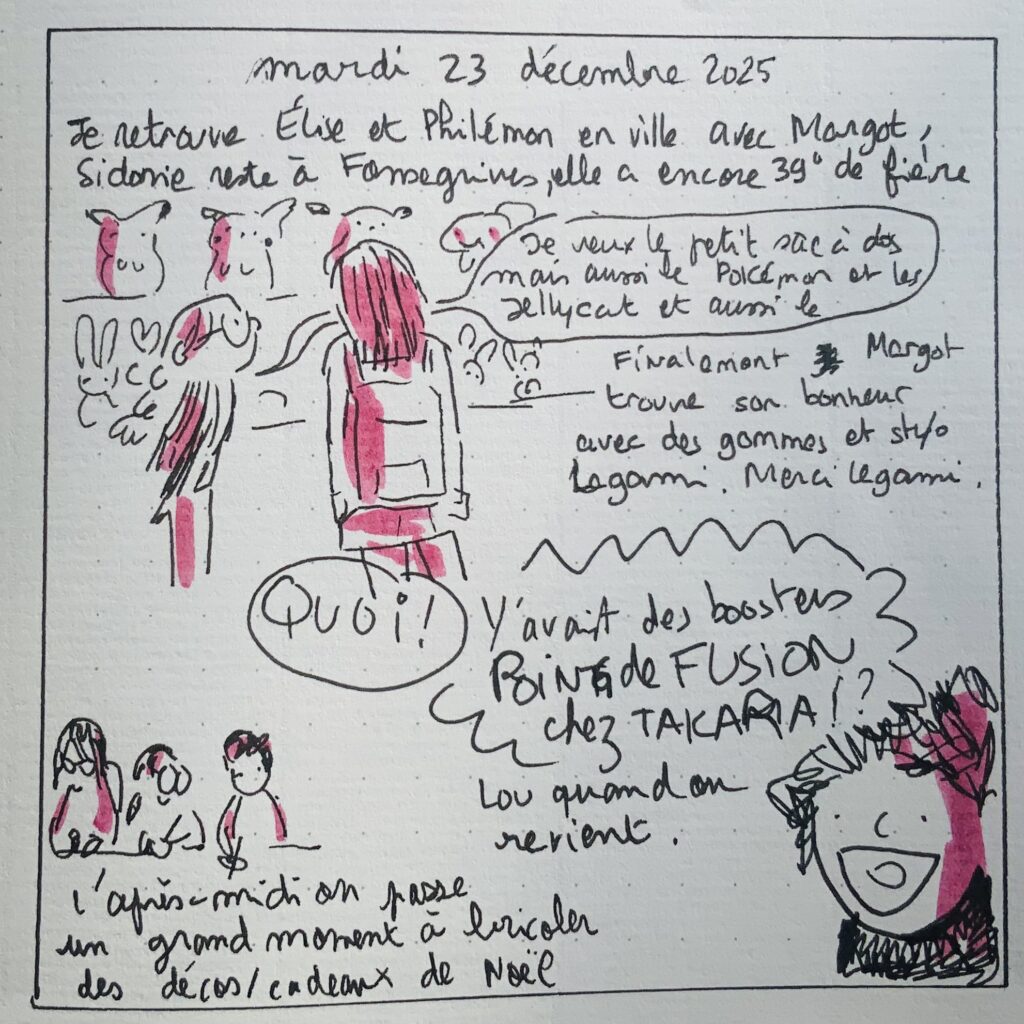 mardi 23 décembre 2025
Je retrouve Élise et Philémon en ville avec Margot,
Sidonie reste à Fonsegrives, elle a encore 39° de fièvre
Je veux le petit sac à dos
mais aussi le Pokémon et les
Jellycat et aussi le
Finalement Margot
trouve son bonheur
avec des gommes et stylo
Legami. Merci Legami.
QUOI!
Y'avait des boosters
POING de FUSION
chez TAKARA!?
Lou quand on
revient.
L'après-midi on passe
un grand moment à bricoler
des décos/cadeaux de Noël